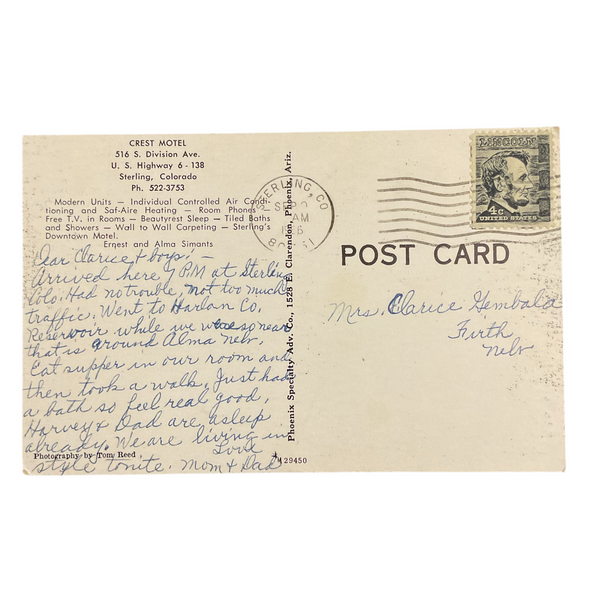 CREST MOTEL
516 S. Division Ave.
U. S. Highway 6 - 138
Sterling, Colorado
Ph. 522-3753
Modern Units — Individual Controlled Air Condi-
tioning and Saf-Aire Heating — Room Phones
Free T.V. in Rooms — Beautyrest Sleep — Tiled Baths
and Showers — Wall to Wall Carpeting — Sterling's
Downtown Motel
Ernest and Alma Simants
Dear Clarice & boys! —
Arrived here 7 PM at Sterling
Colo. Had no trouble, not too much
traffic. Went to Harlan Co.
Reservoir while we were so near
that is around Alma Nebr.
Eat supper in our room and
then took a walk. Just had
a bath so feel real good.
Harvey & Dad are asleep
already. We are living in
style tonite. Love
Mom & Dad
Photography by Tom Reed
Phoenix Specialty Adv. Co., 1528 E. Clarendon, Phoenix, Ariz.
29450
STERLING, CO
SEP
AM
LINCOLN
4c
UNITED STATES
POST CARD
Mrs. Clarice
Firth
Nebr